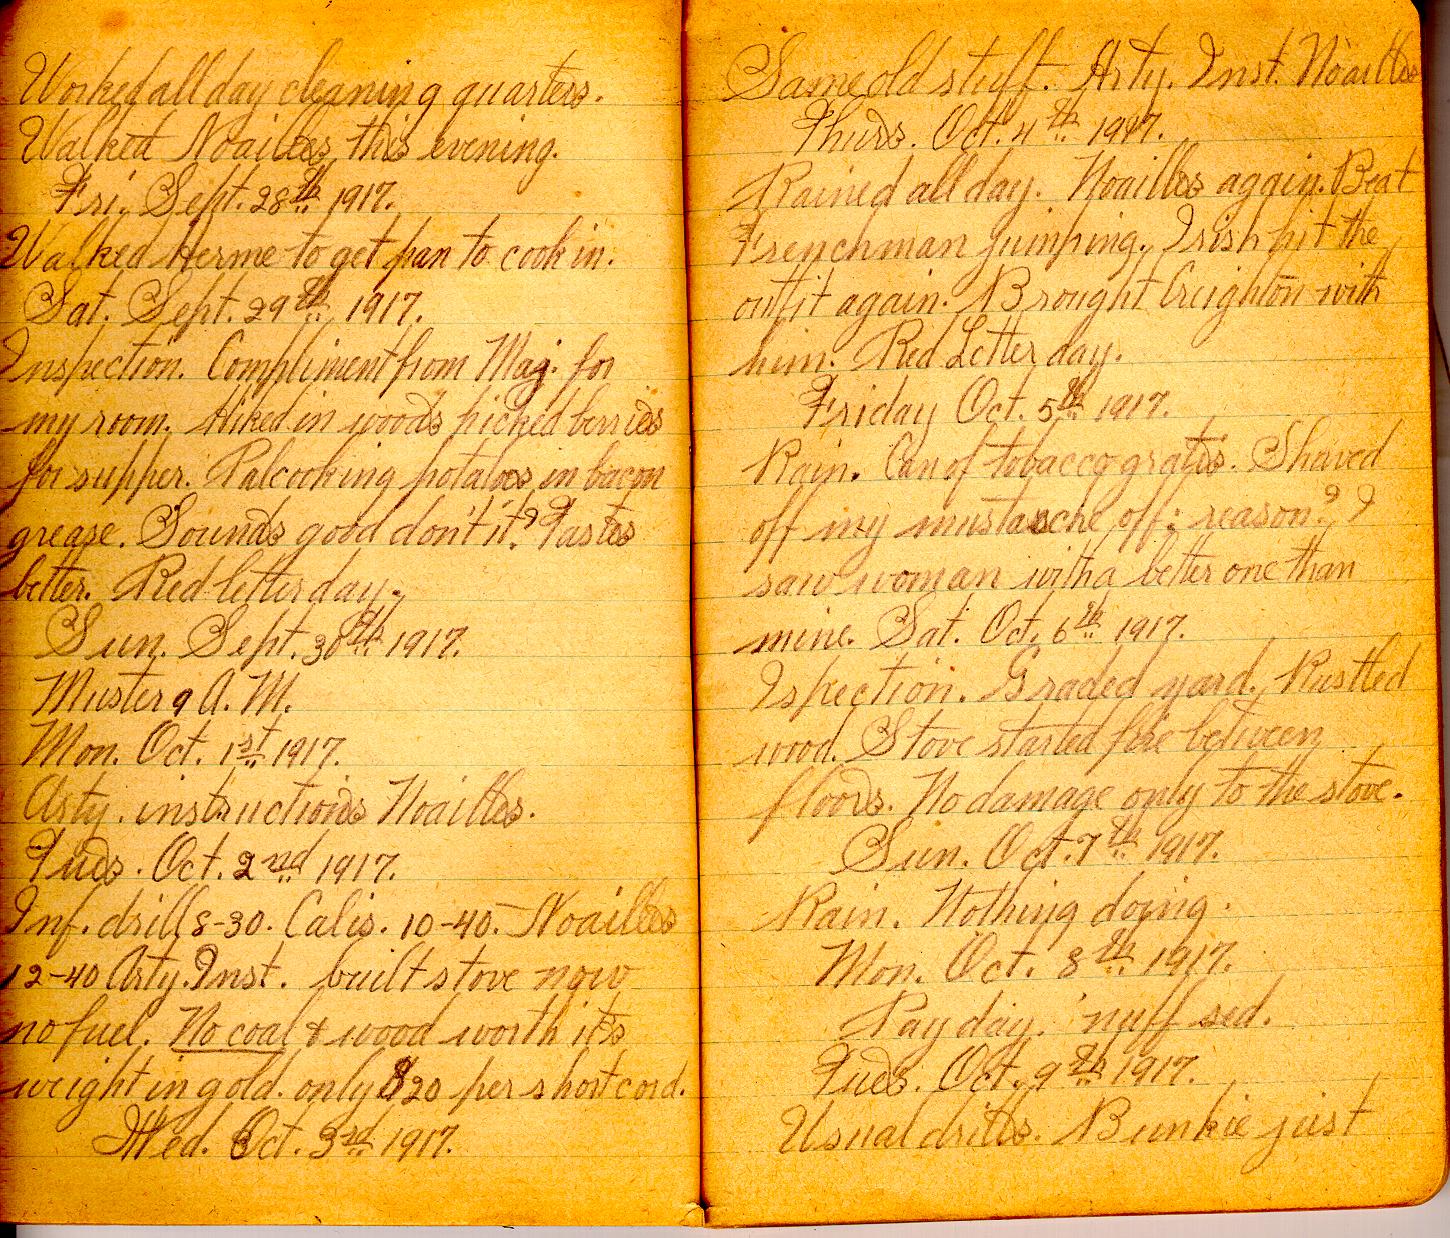 Worked all day cleaning quarters.
Walked Noailles this evening.
Fri. Sept. 28th 1917.
Walked Herme to get pan to cook in.
Sat. Sept. 29th 1917.
Inspection. Compliment from Maj. for
my room. Hiked in woods picked berries
for supper. Pal cooking potatoes in bacon
grease. Sounds good don't it? Tastes
better. Red letter day.
Sun. Sept. 30th 1917.
Muster 9 A.M.
Mon. Oct. 1st 1917.
Arty. instructions Noailles.
Tues. Oct. 2nd 1917.
Inf. drill 8-30. Calis. 10-40. Noailles
12-40 Arty. Inst. built stove now
no fuel. No coal & wood worth it's
weight in gold. only $20 per short cord.
Wed. Oct. 3rd 1917.
Same old stuff. Arty. Inst. Noailles
Thurs. Oct. 4th 1917.
Rained all day. Noailles again. Beat
Frenchman jumping. Irish hit the
outfit again. Brought Creighton with
him. Red Letter day.
Friday Oct. 5th 1917.
Rain. Can of tobacco gratis. Shaved
off my mustasche off; reason??
saw woman with a better one than
mine. Sat. Oct. 6th 1917.
Ispection. Graded yard. Rustled
wood. Stove started fire between
floors. No damage only to the stove.
Sun. Oct. 7th 1917.
Rain. Nothing doing.
Mon. Oct. 8th 1917.
Pay day. 'nuff sed.
Tues. Oct. 9th 1917.
Usual drills. Bunkie just